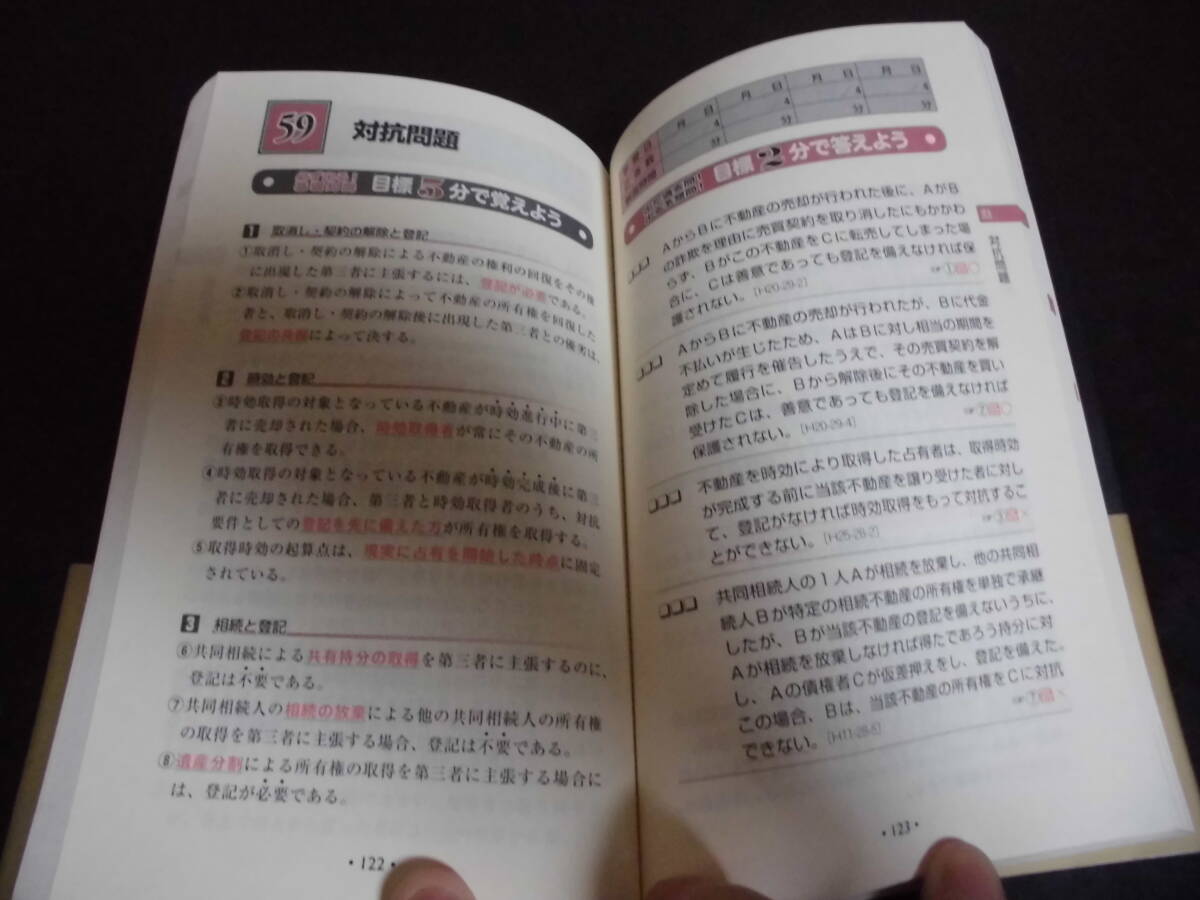 59 対抗問題
目標5分で覚えよう
1 取消し・契約の解除と登記
①取消し・契約の解除による不動産の権利の回復をその後
に出現した第三者に主張するには、登記が必要である。
②取消し・契約の解除によって不動産の所有権を回復した
者と、取消し・契約の解除後に出現した第三者との優劣は、
登記の先後によって決する。
2 時効と登記
③時効取得の対象となっている不動産が時効進行中に第三
者に売却された場合、時効取得者が常にその不動産の所
有権を取得できる。
④時効取得の対象となっている不動産が時効完成後に第三
者に売却された場合、第三者と時効取得者のうち、対抗
要件としての登記を先に備えた方が所有権を取得する。
⑤取得時効の起算点は、現実に占有を開始した時点に固定
されている。
3 相続と登記
⑥共同相続による共有持分の取得を第三者に主張するのに、
登記は不要である。
⑦共同相続人の相続の放棄による他の共同相続人の所有権
の取得を第三者に主張する場合、登記は不要である。
⑧遺産分割による所有権の取得を第三者に主張する場合に
は、登記が必要である。
・122・
月 日 月 日 月 日 月 日
4 4 4 4
分 分 分 分
目標2分で答えよう
AからBに不動産の売却が行われた後に、AがB
の詐欺を理由に売買契約を取り消したにもかかわ
らず、Bがこの不動産をCに転売してしまった場
合に、Cは善意であっても登記を備えなければ保
護されない。[H20-29-2] ☞①○
AからBに不動産の売却が行われたが、Bに代金
不払いが生じたため、AはBに対し相当の期間を
定めて履行を催告したうえで、その売買契約を解
除した場合に、Bから解除後にその不動産を買い
受けたCは、善意であっても登記を備えなければ
保護されない。[H20-29-4] ☞②○
不動産を時効により取得した占有者は、取得時効
が完成する前に当該不動産を譲り受けた者に対し
て、登記がなければ時効取得をもって対抗するこ
とができない。[H25-28-2] ☞③×
共同相続人の1人Aが相続を放棄し、他の共同相
続人Bが特定の相続不動産の所有権を単独で承継
したが、Bが当該不動産の登記を備えないうちに、
Aが相続を放棄しなければ得たであろう持分に対
し、Aの債権者Cが仮差押えをし、登記を備えた。
この場合、Bは、当該不動産の所有権をCに対抗
できない。[H11-28-5] ☞⑦×
対抗問題
・123・